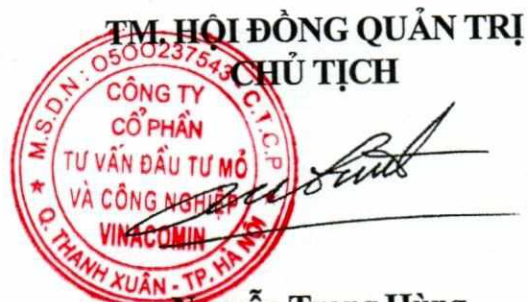 TM. HỘI ĐỒNG QUẢN TRỊ
CHỦ TỊCH
M.S.D.N: 0500237543 C.T.C.P
CÔNG TY
CỔ PHẦN
TƯ VẤN ĐẦU TƯ MỎ
VÀ CÔNG NGHIỆP
VINACOMIN
Q. THANH XUÂN - TP. HÀ NỘI